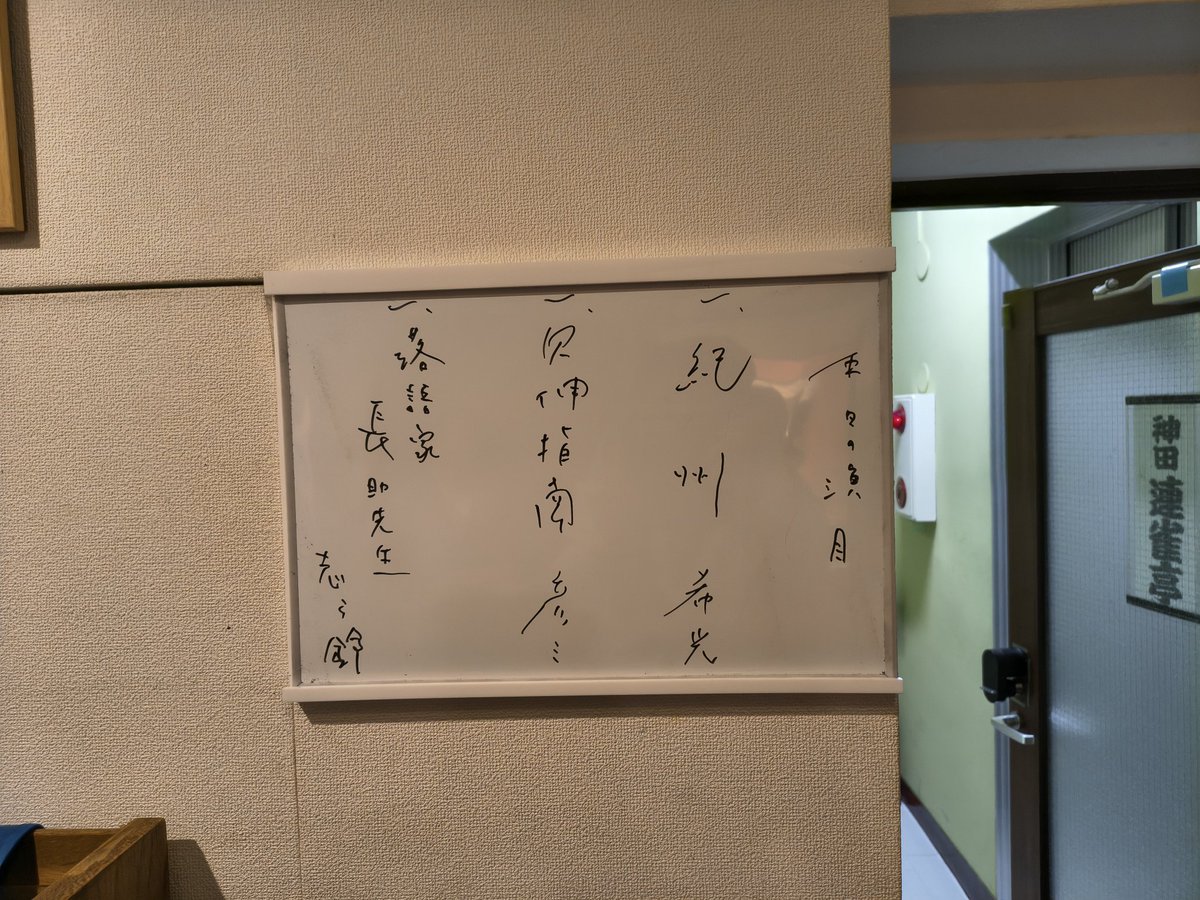 本日の演目
一、紀州 希光
一、欠伸指南 彦三
一、落語家
長助先生
志ら鈴
神田 連雀亭